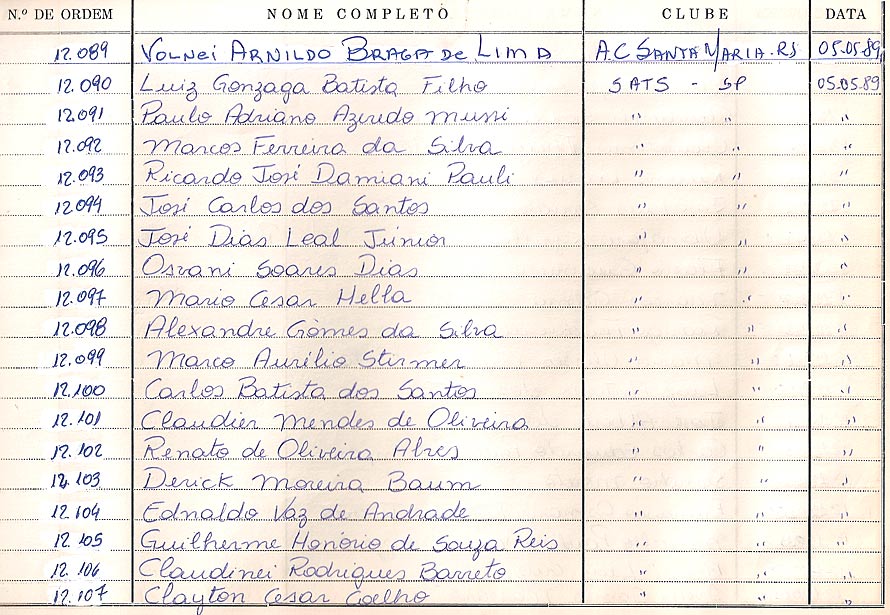 N.º DE ORDEM NOME COMPLETO CLUBE DATA
12.089 VOLNEI ARNILDO BRAGA DE LIMA A.C SANTA MARIA-RS 05.05.89
12.090 Luiz Gonzaga Batista Filho SATS - SP 05.05.89
12.091 Paulo Adriano Azeredo " " "
12.092 Marcos Ferreira da Silva " " "
12.093 Ricardo José Damiani Pauli " " "
12.094 José Carlos dos Santos " " "
12.095 José Dias Leal Júnior " " "
12.096 Osvani Soares Dias " " "
12.097 Mario Cesar Hella " " "
12.098 Alexandre Gomes da Silva " " "
12.099 Marco Aurélio Stirmer " " "
12.100 Carlos Batista dos Santos " " "
12.101 Claudier Mendes de Oliveira " " "
12.102 Renato de Oliveira Alves " " "
12.103 Derick Moreira Baum " " "
12.104 Ednaldo Vaz de Andrade " " "
12.105 Guilherme Honório de Souza Reis " " "
12.106 Claudinei Rodrigues Barreto " " "
12.107 Clayton Cesar Coelho " " "